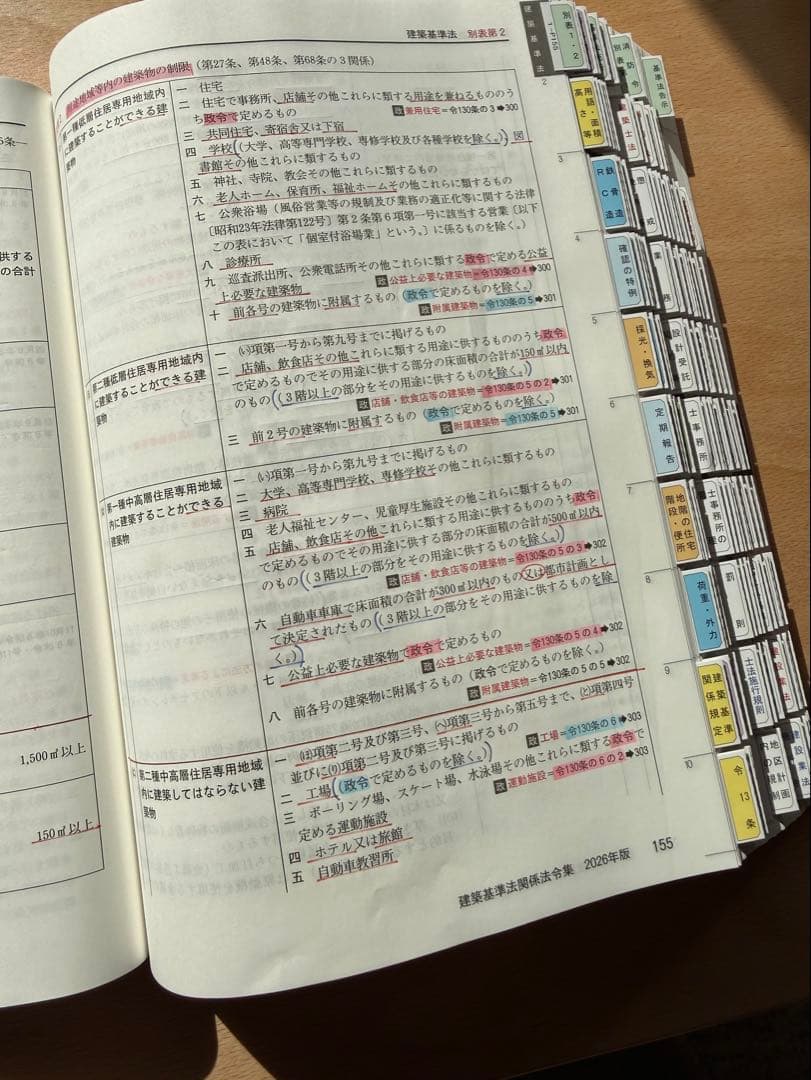 建築基準法　別表第2
用途地域等内の建築物の制限（第27条、第48条、第68条の３関係）
第一種低層住居専用地域内に建築することができる建築物
一　住宅
二　住宅で事務所、店舗その他これらに類する用途を兼ねるもののうち政令で定めるもの
政兼用住宅＝令130条の３➡300
三　共同住宅、寄宿舎又は下宿
四　学校（大学、高等専門学校、専修学校及び各種学校を除く。）、図書館その他これらに類するもの
五　神社、寺院、教会その他これらに類するもの
六　老人ホーム、保育所、福祉ホームその他これらに類するもの
七　公衆浴場（風俗営業等の規制及び業務の適正化等に関する法律
〔昭和23年法律第122号〕第２条第６項第一号に該当する営業〔以下
この表において「個室付浴場業」という。〕に係るものを除く。）
八　診療所
九　巡査派出所、公衆電話所その他これらに類する政令で定める公益
上必要な建築物
政公益上必要な建築物＝令130条の４➡300
十　前各号の建築物に附属するもの（政令で定めるものを除く。）
政附属建築物＝令130条の５➡301
第二種低層住居専用地域内に建築することができる建築物
一　(い)項第一号から第九号までに掲げるもの
二　店舗、飲食店その他これらに類する用途に供するもののうち政令
で定めるものでその用途に供する部分の床面積の合計が150㎡以内
のもの（３階以上の部分をその用途に供するものを除く。）
政店舗・飲食店等の建築物＝令130条の５の２➡301
三　前２号の建築物に附属するもの（政令で定めるものを除く。）
政附属建築物＝令130条の５➡301
第一種中高層住居専用地域内に建築することができる建築物
一　(い)項第一号から第九号までに掲げるもの
二　大学、高等専門学校、専修学校その他これらに類するもの
三　病院
四　老人福祉センター、児童厚生施設その他これらに類するもの
五　店舗、飲食店その他これらに類する用途に供するもののうち政令
で定めるものでその用途に供する部分の床面積の合計が500㎡以内
のもの（３階以上の部分をその用途に供するものを除く。）
政店舗・飲食店等の建築物＝令130条の５の３➡302
六　自動車車庫で床面積の合計が300㎡以内のもの又は都市計画とし
て決定されたもの（３階以上の部分をその用途に供するものを除
く。）
七　公益上必要な建築物で政令で定めるもの
政公益上必要な建築物＝令130条の５の４➡302
八　前各号の建築物に附属するもの（政令で定めるものを除く。）
政附属建築物＝令130条の５の５➡302
第二種中高層住居専用地域内に建築してはならない建築物
一　(ほ)項第二号及び第三号、(へ)項第三号から第五号まで、(と)項第四号
並びに(り)項第二号及び第三号に掲げるもの
二　工場（政令で定めるものを除く。）
政工場＝令130条の６➡303
三　ボーリング場、スケート場、水泳場その他これらに類する政令で
定める運動施設
政運動施設＝令130条の６の２➡303
四　ホテル又は旅館
五　自動車教習所
建築基準法関係法令集　2026年版　155
供する
の合計
1,500㎡以上
150㎡以上
建築基準法
別表１・２
用語・面積
高さ・等
鉄骨造
ＲＣ造
確認の特例
採光・換気
定期報告
地階の住宅
階段・便所
荷重・外力
建築基準
関係規定
令13条
消防令
基準法告示
建築士法
懲戒
業務
設計受託
士事務所
罰則
士法施行規則
建設業法
2
3
4
5
6
7
8
9
10